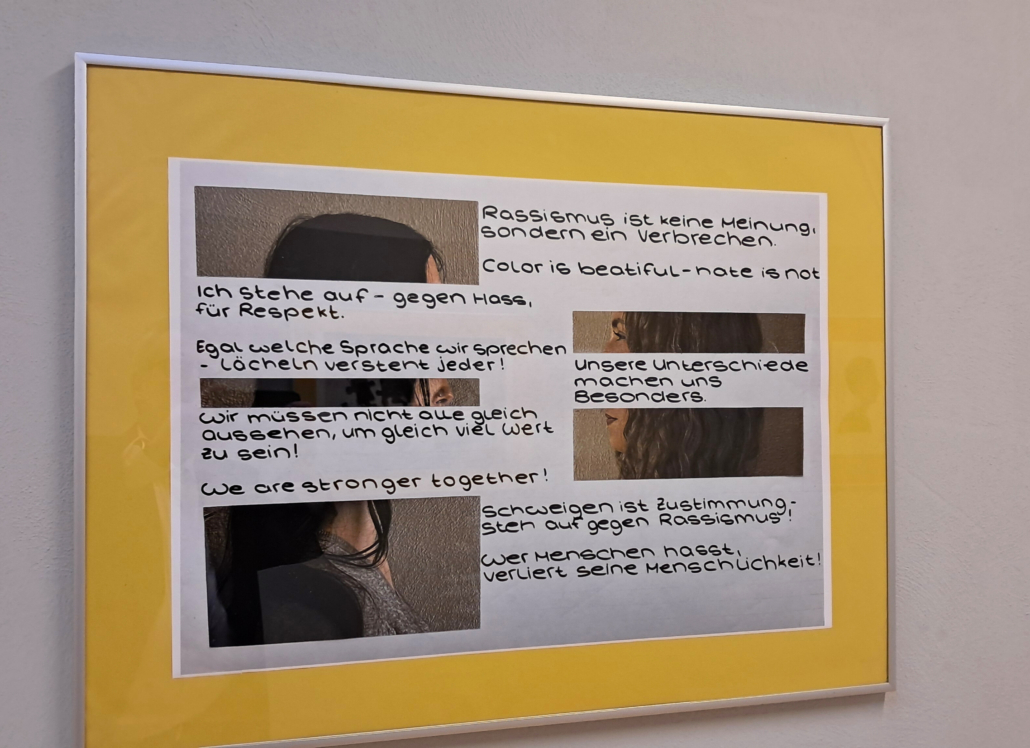 Rassismus ist keine Meinung,
sondern ein Verbrechen.
Color is beatiful - hate is not
Ich stehe auf - gegen Hass,
für Respekt.
Egal welche Sprache wir sprechen
- Lächeln versteht jeder!
Unsere Unterschiede
machen uns
Besonders.
Wir müssen nicht alle gleich
aussehen, um gleich viel wert
zu sein!
We are stronger together!
Schweigen ist Zustimmung -
steh auf gegen Rassismus!
Wer Menschen hasst,
verliert seine Menschlichkeit!